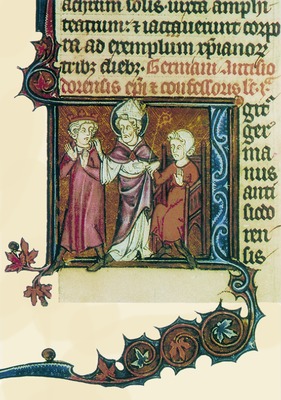 solis iuxta amphi
teatrum: ⁊ iacuerunt corpo
ra ad exemplum xpianor
trib; dieb; Germani autisio
dorensis epi ⁊ confessoris
ger
ma
nus
auti
siodo
ren
sis